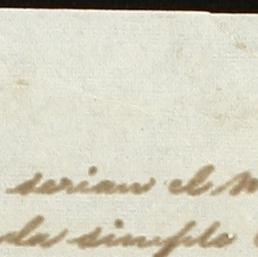 serian el
la simple